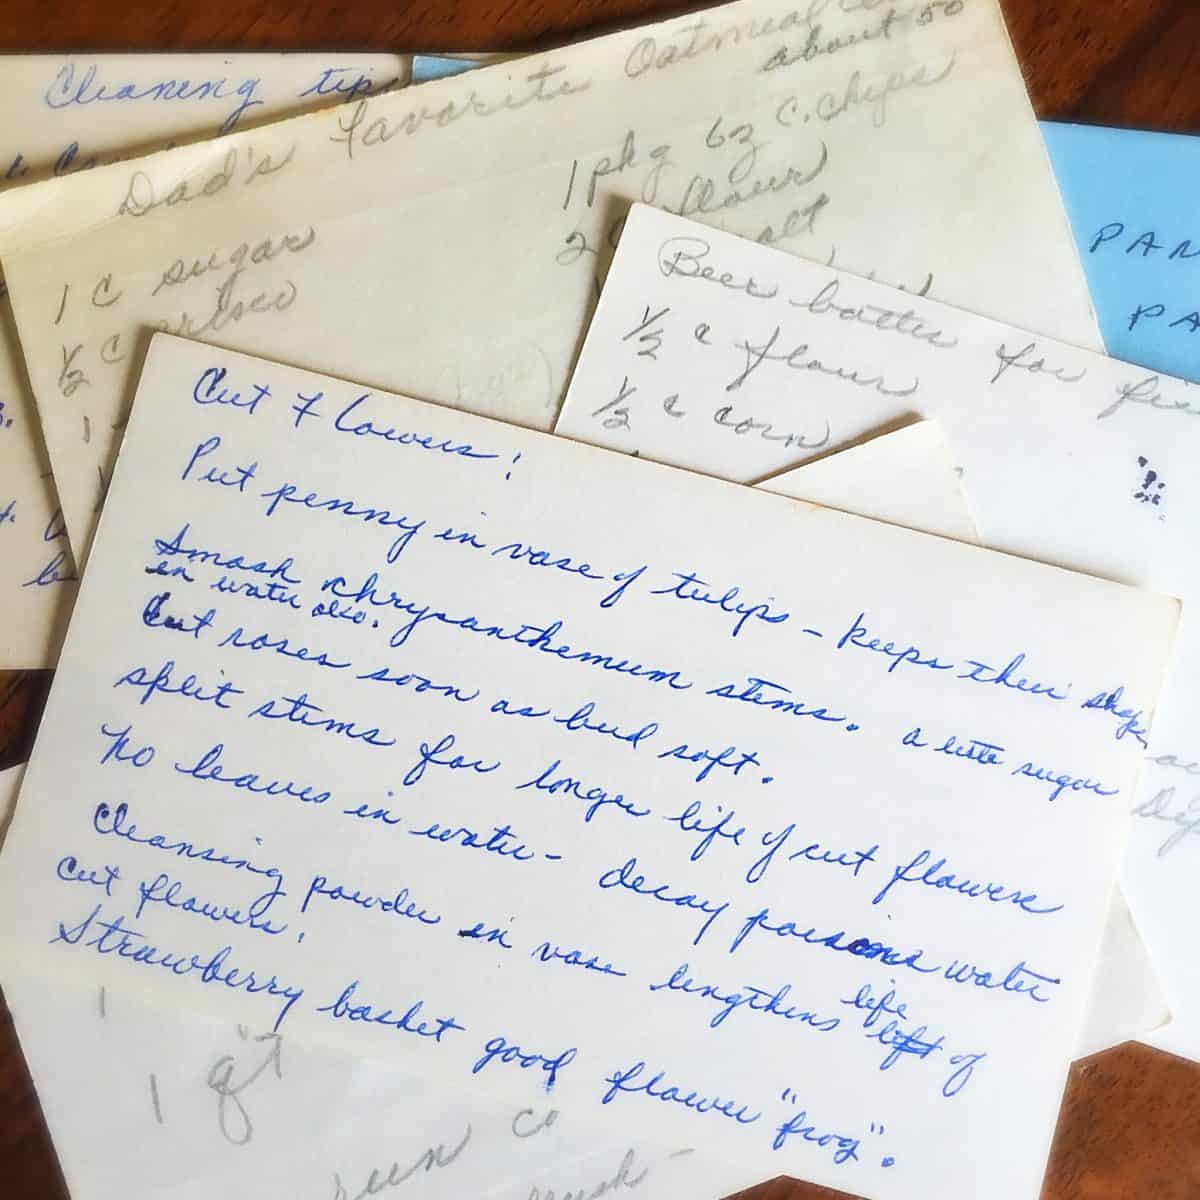 Cleaning tips
Dad's favorite Oatmeal
about 50
1 C sugar
1/2 C Crisco
1
1 pkg 6z C. chips
2 C flour
salt
PAN
PA
Beer batter for
1/2 c flour
1/2 c corn
Cut Flowers:
Put penny in vase of tulips - keeps their shape
Smash chrysanthemum stems. a little sugar
in water also.
Cut roses soon as bud soft.
split stems for longer life of cut flowers
No leaves in water - decay poisons water
Cleansing powder in vase lengthens life of
cut flowers.
Strawberry basket good flower "frog".
1
1 qt